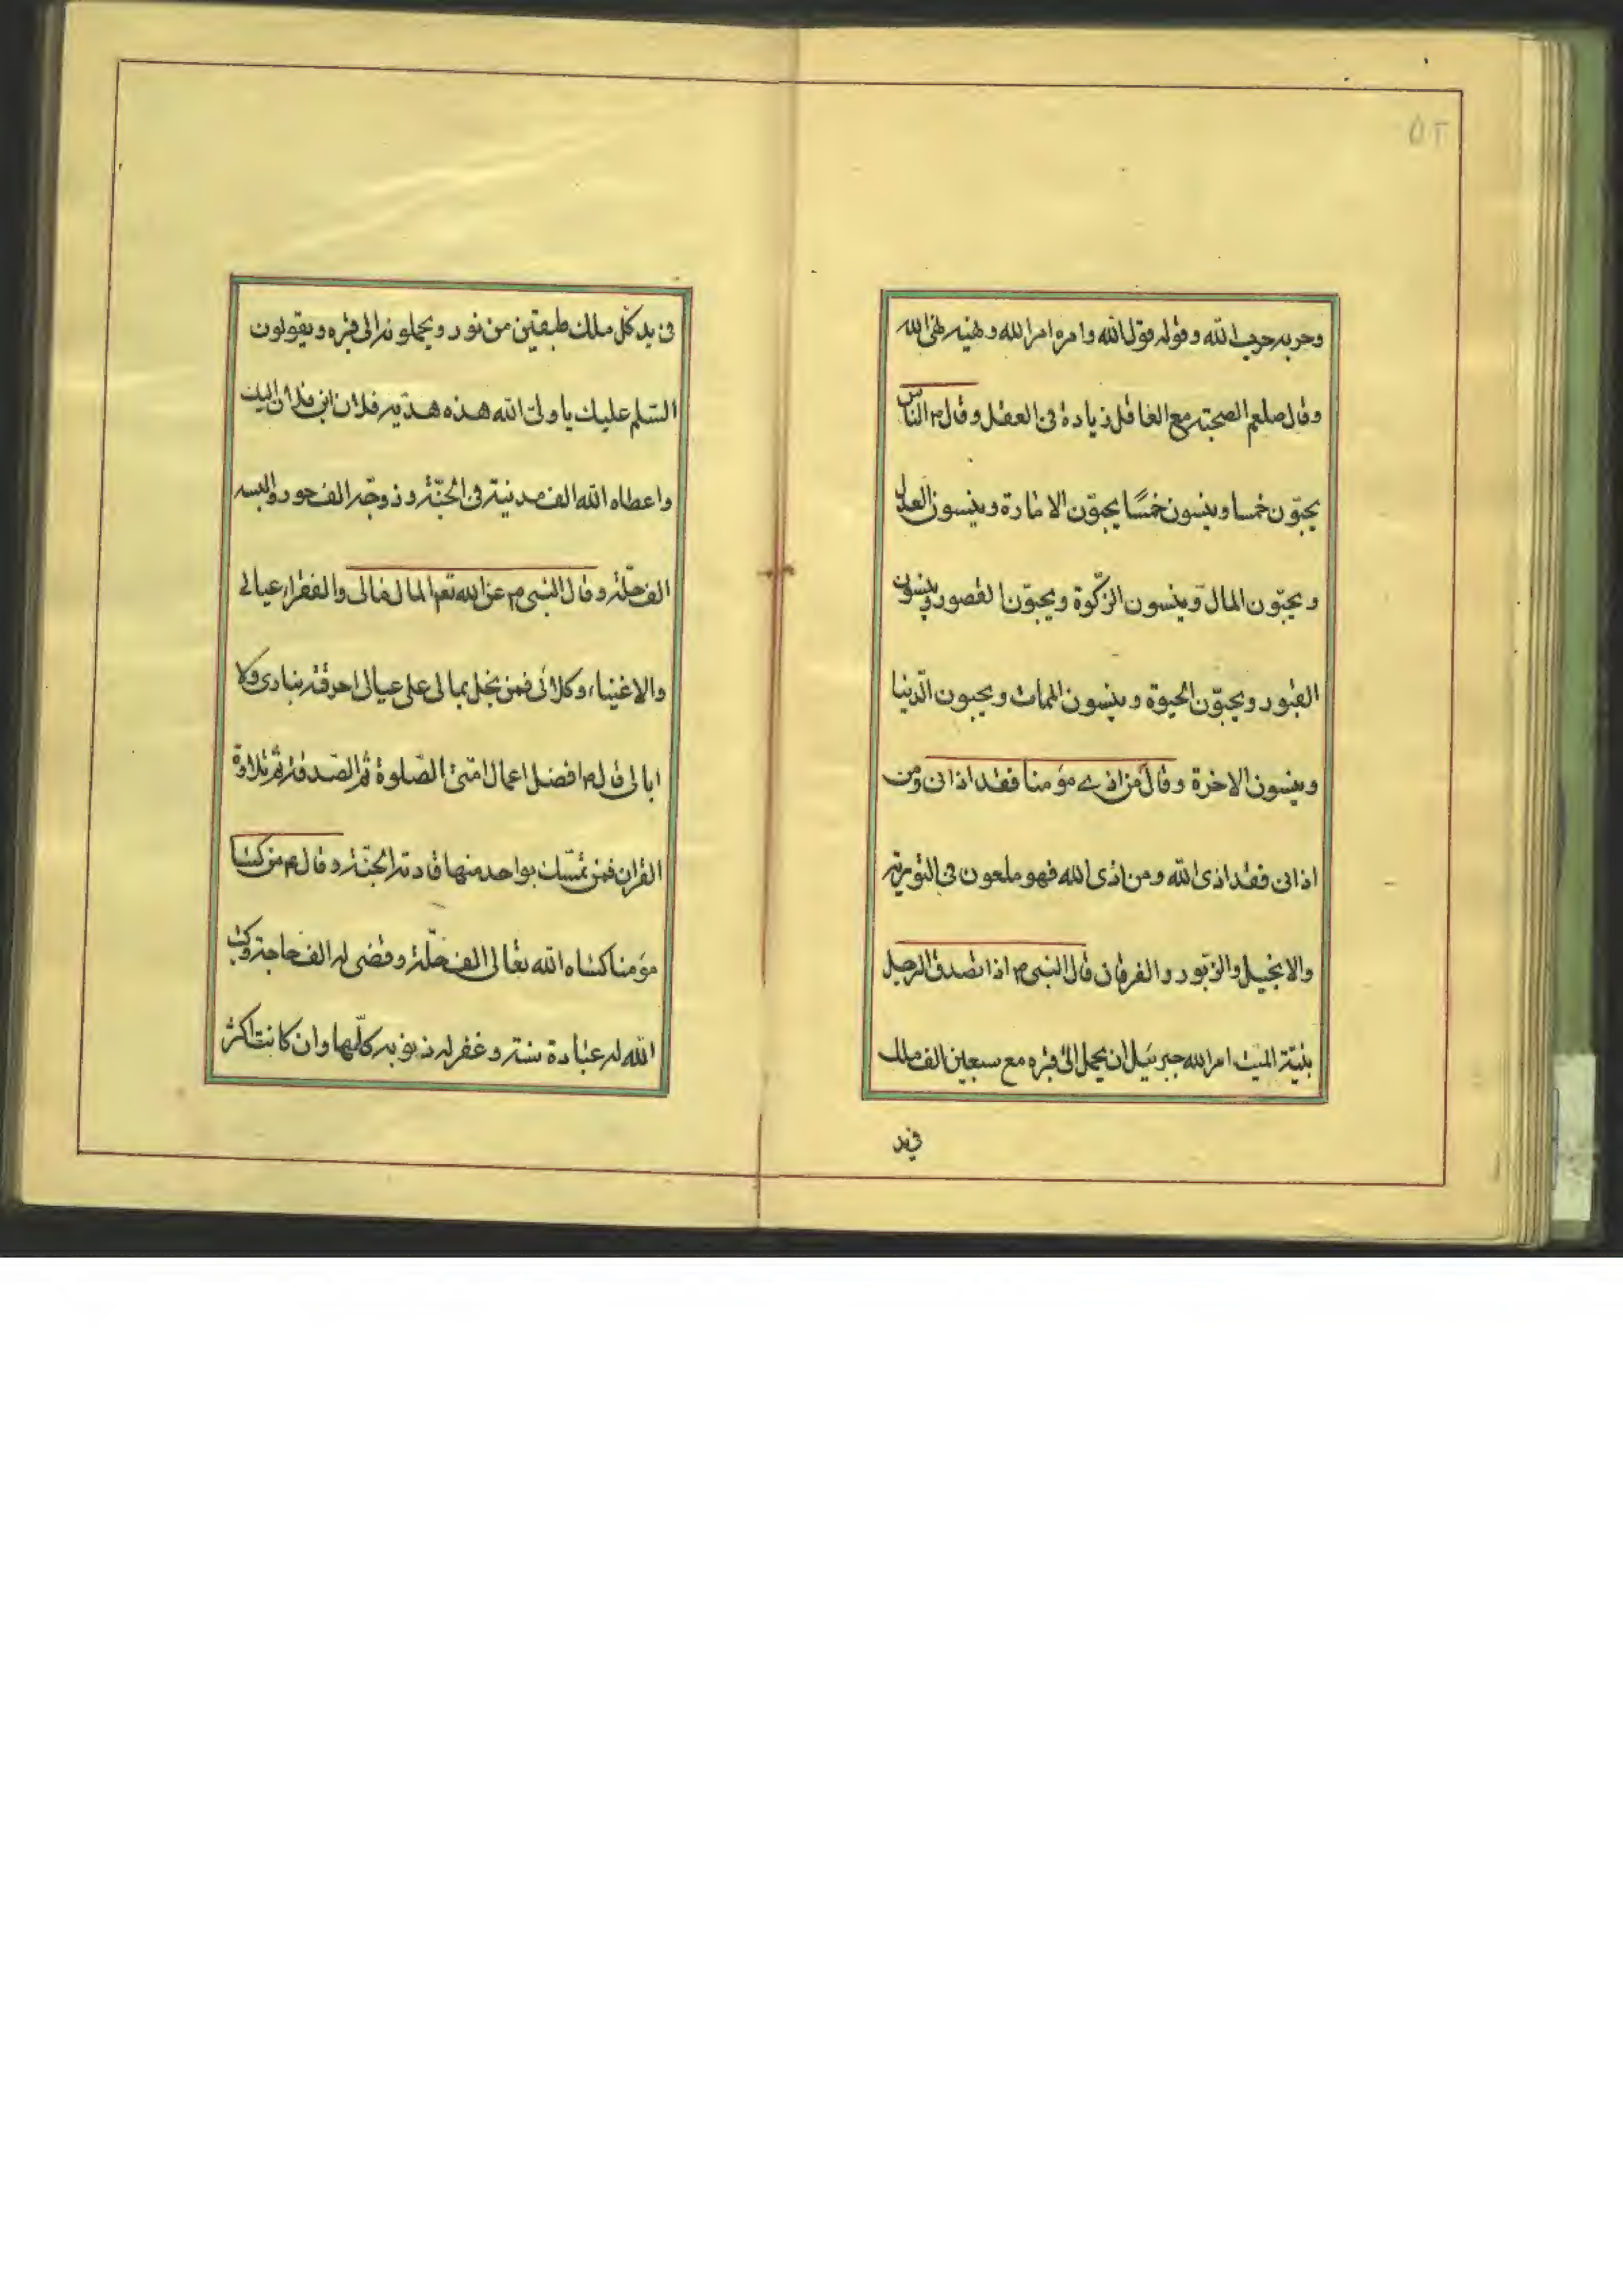 ٥٢
وحربه حرب الله وقوله قول الله وامره امر الله ونهيه نهى الله
وقال صلعم الصحبته مع العاقل زيادة فى العقل وقال م الناس
يحبّون خمسا وينسون خمسًا يحبّون الامارة وينسون العدل
ويحبّون المال وينسون الزّكوة ويحبّون القصور وينسون
القبور ويحبّون الحيوة وينسون الممات ويحبون الدّنيا
وينسون الاخرة وقال من اذى مؤمنا فقد اذانى ومن
اذانى فقد اذى الله ومن اذى الله فهو ملعون فى التوریة
والانجيل والزّبور والفرقان قال النبى م اذا تصدق الرجل
بنيّة الميت امر الله جبرئيل ان يحمل الى قبره مع سبعين الف ملك
فى يد
فى يد كلّ ملك طبقتين من نور ويحملونه الى قبره ويقولون
السّلم عليك يا ولىّ الله هذه هديّه فلان ابن فلان اليك
واعطاه الله الف مدينة فى الجنّة وزوجّه الف حور والبسه
الف حلّة وقال النبى م عن الله تعم المال مالى والفقراء عيالى
والاغنياء وكلائى فمن بخل بمالى على عيالى احرقته بنارى ولا
ابالى قال م افضل اعمال امتى الصّلوة ثم الصّدقة ثم تلاوة
القران فمن تمسّك بواحد منها قادته الجنّة وقال م من كسا
مؤمنا كساه الله تعالى الف حلّة وقضى له الف حاجة وكتب
الله له عبادة سنة وغفر له ذنوبه كلّها وان كانت اكثر